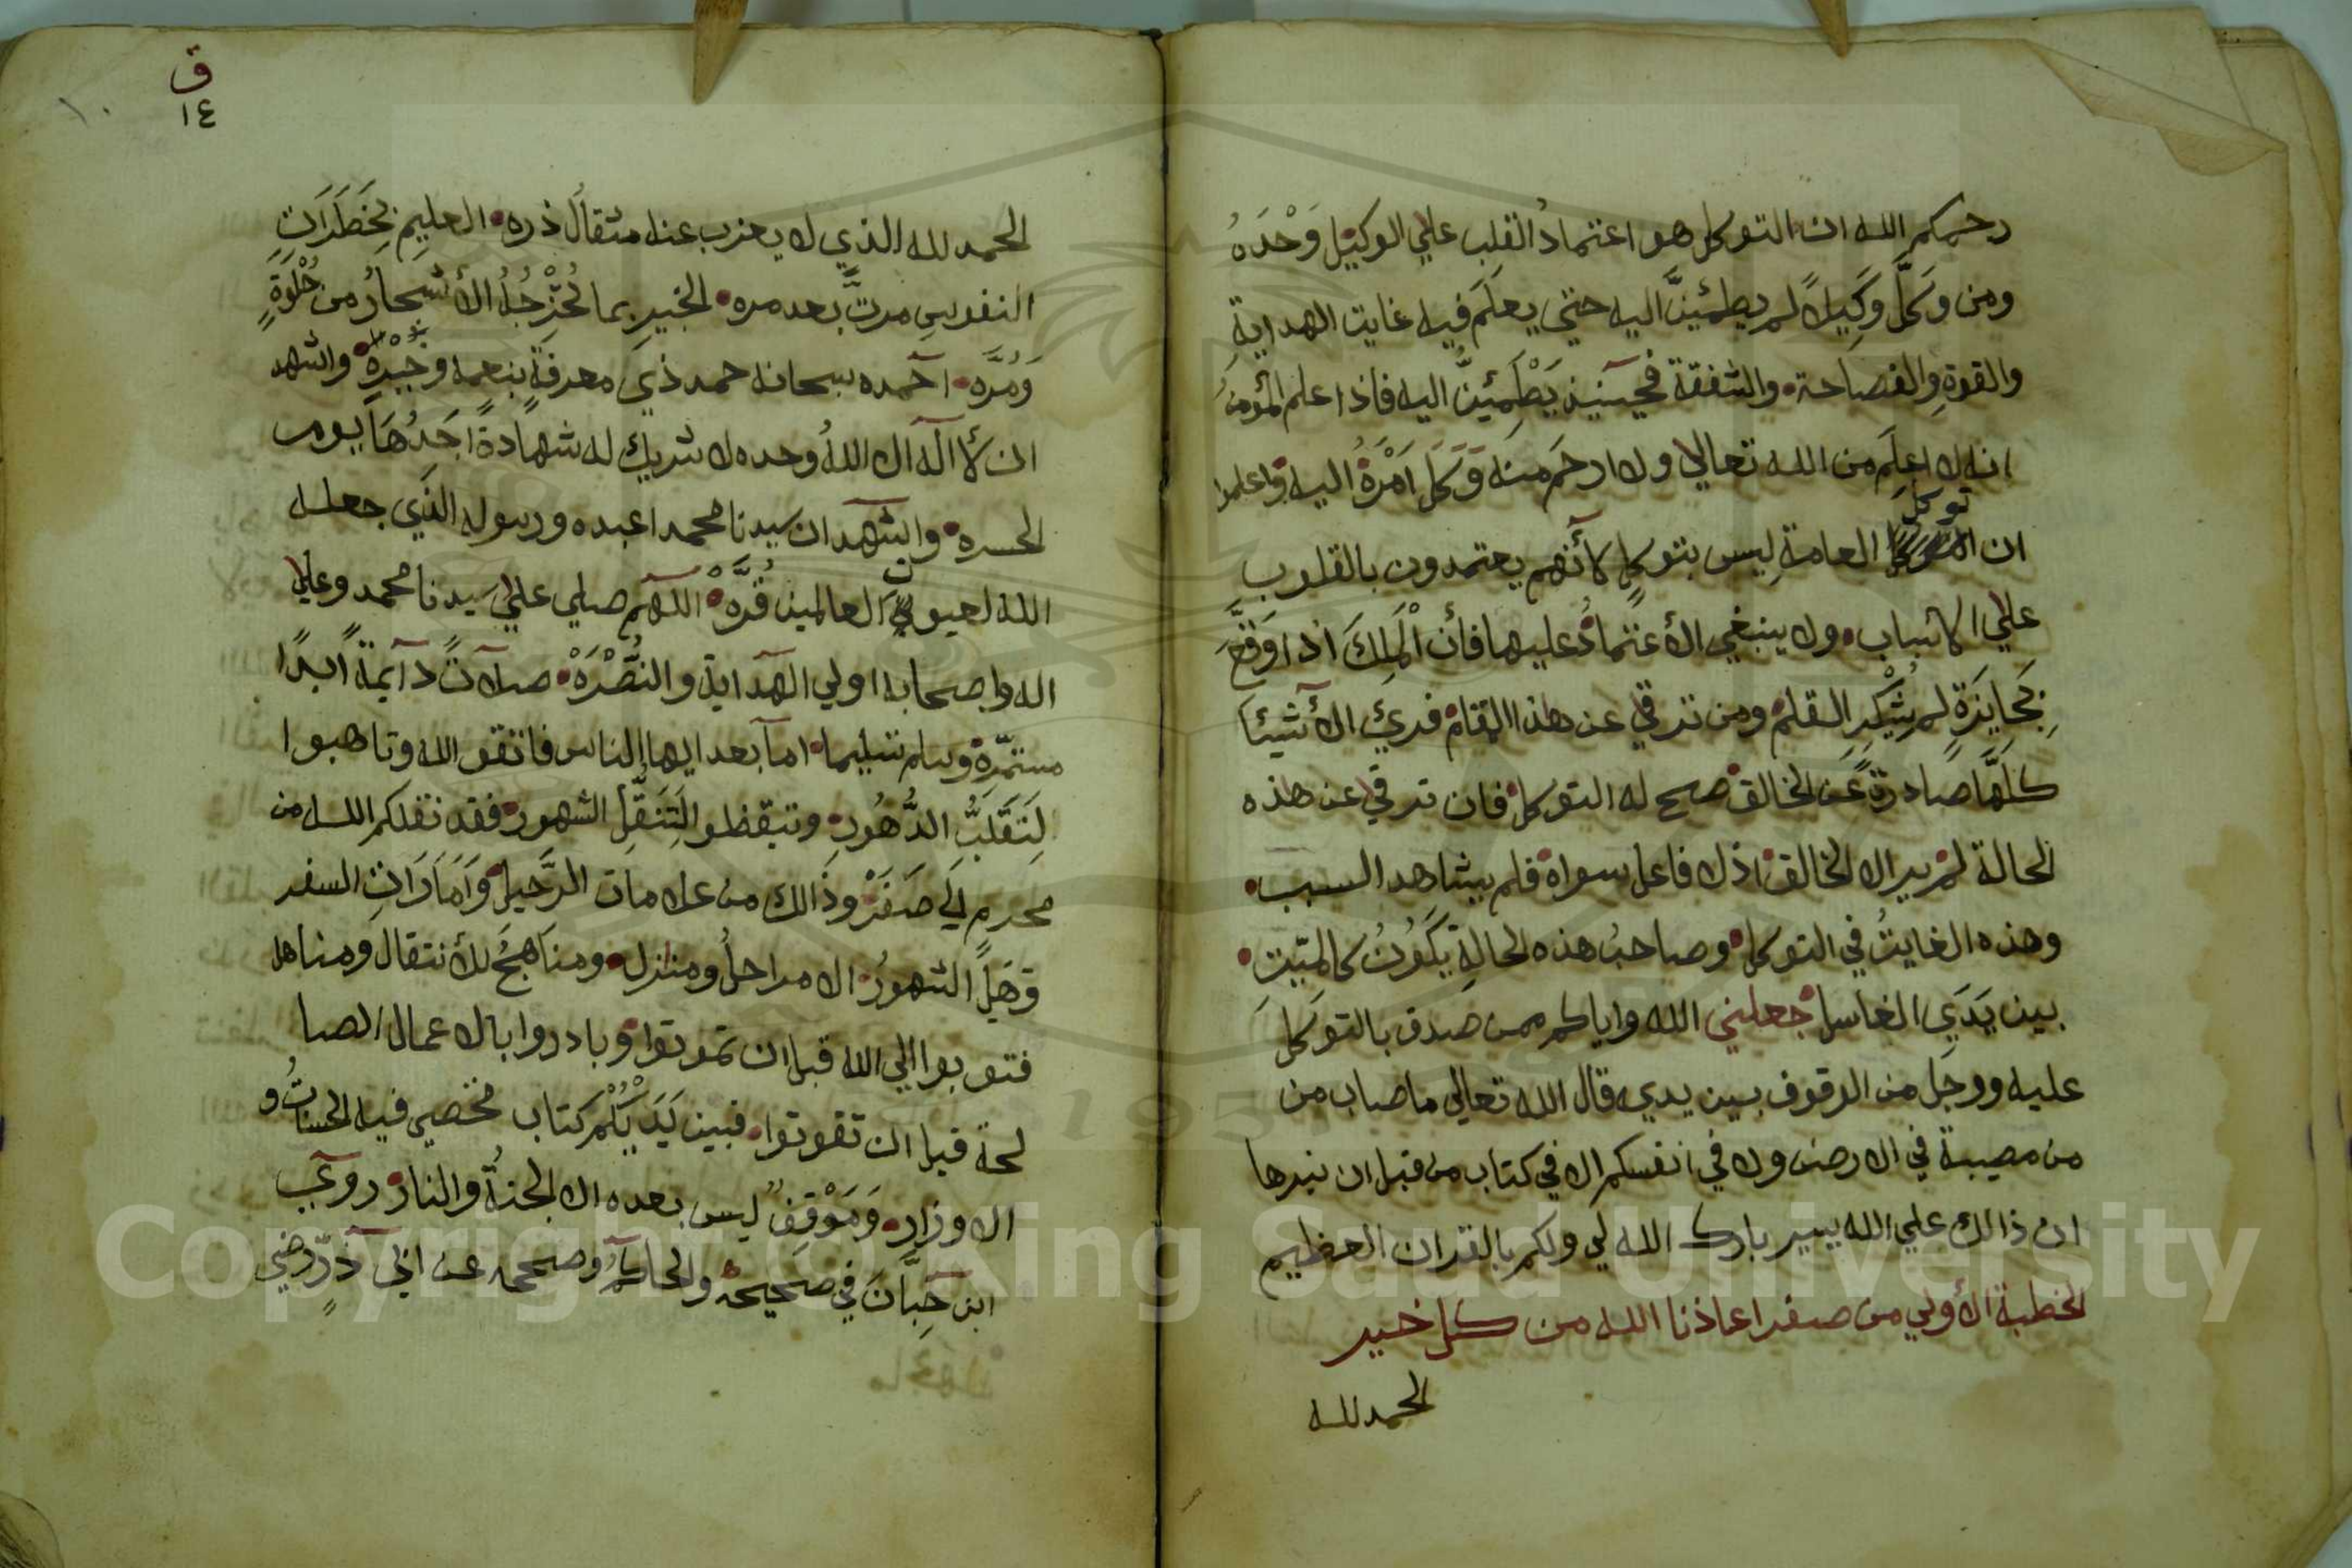 رحمكم الله ان التوكل هو اعتمادُ القلب علي الوكيل وَحْدَهُ
ومن وَكَّلَ وَكِيلاً لم يطمئينَّ اليه حتي يعلَم فيه غايت الهدايةِ
والقوةِ والفصاحة والشفقة فحينئيذ يَطْمِئينُّ اليه فاذا علم المؤمنُ
انه لا اعلَم من الله تعالا ولا ارحَم منه وَوَكلَ اَمْرَهُ اليه واعلموا
ان توكلَ العامةِ ليس بتوكلٍ لأنهم يعتمدون بالقلوب
علي الاسباب ولا ينبغي الأعتمادُ عليها فأن الْمَلِكَ اذا وَقَّعَ
بِجَايزَةٍ لم يُشْكرِ القلم ومن ترقي عن هذا المقام فرئ الأشيئا
كلَّها صادرةً عَن الخالق صح له التوكل فان ترقي عن هذه
الحالة لم ير الا الخالق اذ لا فاعل سواه فلم يشاهد السبب
وهذه الغايتُ في التوكل وصاحبُ هذه الحالةِ يَكُونُ كالميّت
بين يَدَي الغاسل جعلني الله واياكم ممن صدق بالتوكل
عليه ووجل من الوقوف بين يديه قال الله تعالي ما صاب من
من مصيبة في الارض ولا في انفسكم الا في كتاب من قبل ان نبرها
ان ذالك علي الله يسير بارك الله لي ولكم بالقران العظيم
الخطبة الأولي من صفر اعاذنا الله من كل خير
الحمد لله
ق
١٤
١٠
الحمد لله الذي لا يعزب عنه مثقالُ ذره العليمِ بِخَطَرَاتِ
النفوسِ مرتً بعد مره الخبيرِ بما تُخْرِجُهُ الأشجارُ من حُلْوَةٍ
وَمُرَّه احمده سبحانه حمد ذي معرفةٍ بنعمه وَخُبْرِهْ واشهد
ان لأ اله الا اللهُ وحده لا شريك له شهادةً اجَدُهَا يوم
الحسره واشهد ان سيدنا محمدا عبده ورسوله الذي جعله
الله لعيون العالمين قُرَّهْ اللهم صلي علي سيدنا محمد وعلي
اله واصحابه اولي الهداية والنُّصْرَهْ صلاتً دآيمةً ابدًا
مستمّرة وسلم تسليما اما بعد ايها الناس فاتقو الله وتاهبوا
لِتَقَلُّبِ الدُّهُورِ وتيقظو لِتَنَقُّلِ الشهور فقد نقلكم الله من
محرم الَي صَفَرْ وذَالك من علامات الرَّحيل وَاَمَارَاتِ السفر
وَهَلِ الشهورُ الا مراحلُ ومنازل ومناَهجُ للأنتقال ومناهل
فتوبوا الي الله قبل ان تموتوا وبادروا بالاعمال الصا
لحة قبل ان تفوتوا فبين يَدَيْكُمْ كتاب تخصي فيه الحسناتُ و
الاوزار وَمَوْقِفٌ ليس بعده الا الجنةُ والنار روي
ابن حِبَّانَ في صحيحه والحاكم وصححه عن ابي ذَرٍّ رضي